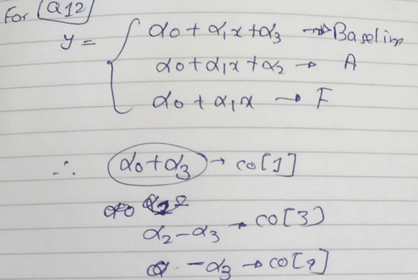 For Q12
y = { α0 + α1x + α3 → Baseline
α0 + α1x + α2 → A
α0 + α1x → F
∴ α0 + α3 → co[1]
α2 - α3 → co[3]
- α3 → co[2]